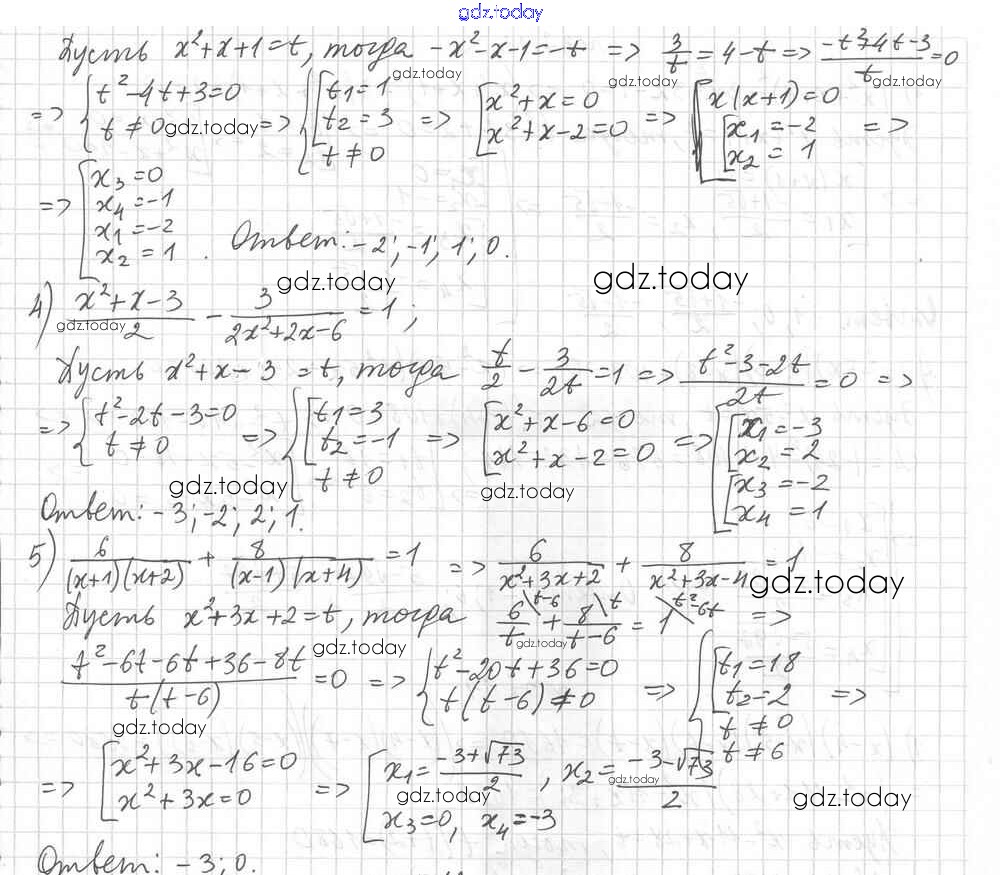 gdz.today
Пусть x²+x+1=t, тогда -x²-x-1=-t => 3/t = 4-t => (-t²+4t-3)/t = 0
gdz.today gdz.today gdz.today
=> { t²-4t+3=0 ; t≠0 => { [ t₁=1 ; t₂=3 ; t≠0 => [ x²+x=0 ; x²+x-2=0 => [ x(x+1)=0 ; [ x₁=-2 ; x₂=1 =>
gdz.today
=> [ x₃=0 ; x₄=-1 ; x₁=-2 ; x₂=1 . Ответ: -2; -1; 1; 0.
gdz.today gdz.today
4) (x²+x-3)/2 - 3/(2x²+2x-6) = 1 ;
gdz.today
Пусть x²+x-3=t, тогда t/2 - 3/2t = 1 => (t²-3-2t)/2t = 0 =>
=> { t²-2t-3=0 ; t≠0 => { [ t₁=3 ; t₂=-1 ; t≠0 => [ x²+x-6=0 ; x²+x-2=0 => [ [ x₁=-3 ; x₂=2 ; [ x₃=-2 ; x₄=1
gdz.today gdz.today
Ответ: -3; -2; 2; 1.
5) 6/((x+1)(x+2)) + 8/((x-1)(x+4)) = 1 => 6/(x²+3x+2) + 8/(x²+3x-4) = 1
gdz.today
Пусть x²+3x+2=t, тогда 6/t \t-6 + 8/(t-6) \t = 1 \t²-6t =>
gdz.today gdz.today
(t²-6t-6t+36-8t)/(t(t-6)) = 0 => { t²-20t+36=0 ; t(t-6)≠0 => { [ t₁=18 ; t₂=2 ; t≠0 ; t≠6 =>
gdz.today
=> [ x²+3x-16=0 ; x²+3x=0 => [ x₁=(-3+√73)/2 , x₂=(-3-√73)/2 ; x₃=0, x₄=-3
gdz.today gdz.today gdz.today
Ответ: -3; 0.